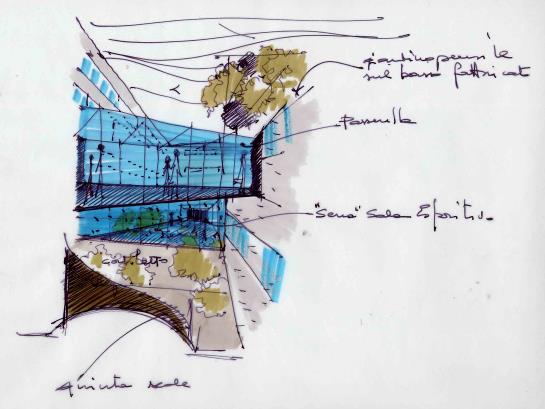 giardino pensile
sul basso fabbricato
Passerella
"serra" sala Espositiva
giardinetto
quinta scale